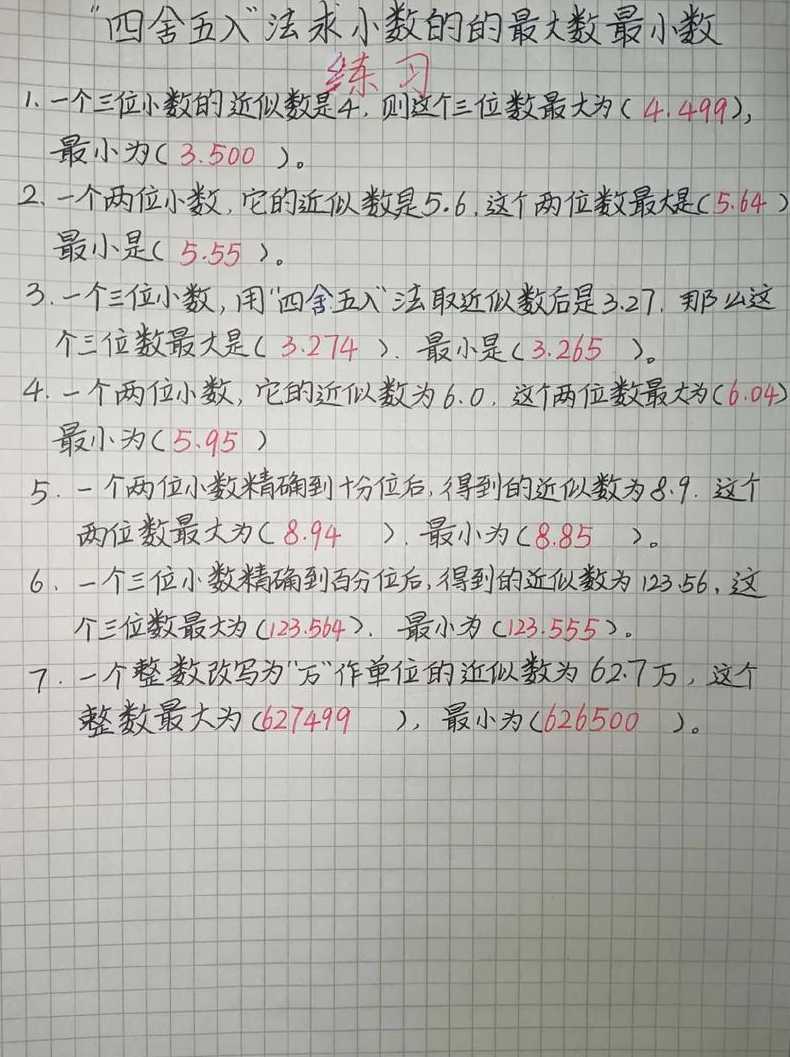 “四舍五入”法求小数的的最大数最小数
练习
1. 一个三位小数的近似数是4, 则这个三位数最大为( 4.499),
最小为( 3.500 )。
2、一个两位小数, 它的近似数是5.6, 这个两位数最大是(5.64 )
最小是( 5.55 )。
3. 一个三位小数, 用“四舍五入”法取近似数后是3.27, 那么这
个三位数最大是( 3.274 ). 最小是( 3.265 )。
4. 一个两位小数, 它的近似数为6.0, 这个两位数最大为(6.04)
最小为(5.95 )
5. 一个两位小数精确到十分位后, 得到的近似数为8.9. 这个
两位数最大为( 8.94 ). 最小为(8.85 )。
6、一个三位小数精确到百分位后, 得到的近似数为123.56, 这
个三位数最大为(123.564). 最小为(123.555)。
7. 一个整数改写为“万”作单位的近似数为62.7万, 这个
整数最大为(627499 ), 最小为(626500 )。